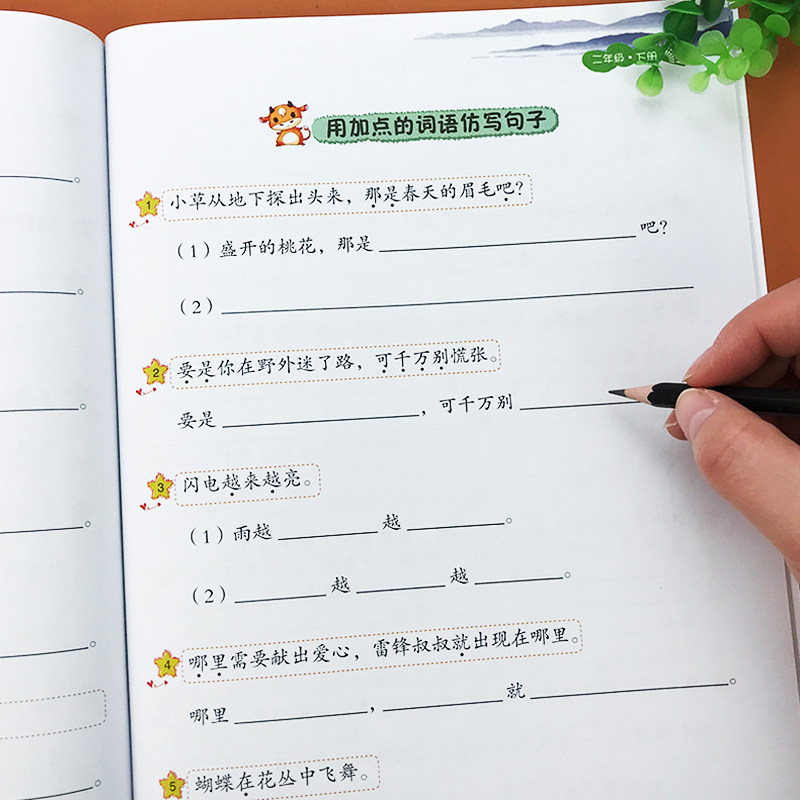 二年级·下册
用加点的词语仿写句子
1 小草从地下探出头来，那是春天的眉毛吧？
（1）盛开的桃花，那是________________吧？
（2）________________
2 要是你在野外迷了路，可千万别慌张。
要是________________，可千万别________
3 闪电越来越亮。
（1）雨越________越________。
（2）________越________越________。
4 哪里需要献出爱心，雷锋叔叔就出现在哪里。
哪里________，________就________________。
5 蝴蝶在花丛中飞舞。